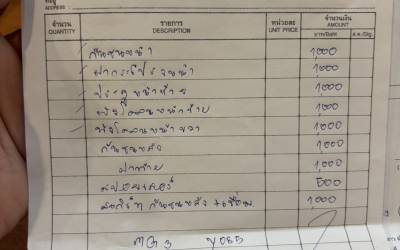 ที่อยู่
ADDRESS :
จำนวน รายการ หน่วยละ จำนวนเงิน
QUANTITY DESCRIPTION UNIT PRICE AMOUNT
บาท/Baht ส.ต./Stg.
กันชนหน้า 1,000
ฝากระโปรงหน้า 1,000
ประตูหน้าซ้าย 1,000
บังโคลนหน้าซ้าย 1,000
บังโคลนหน้าขวา 1,000
กันชนหลัง 1,000
ฝาท้าย 1,000
สปอยเลอร์ 500
กันชนหลัง 1000
MG 3